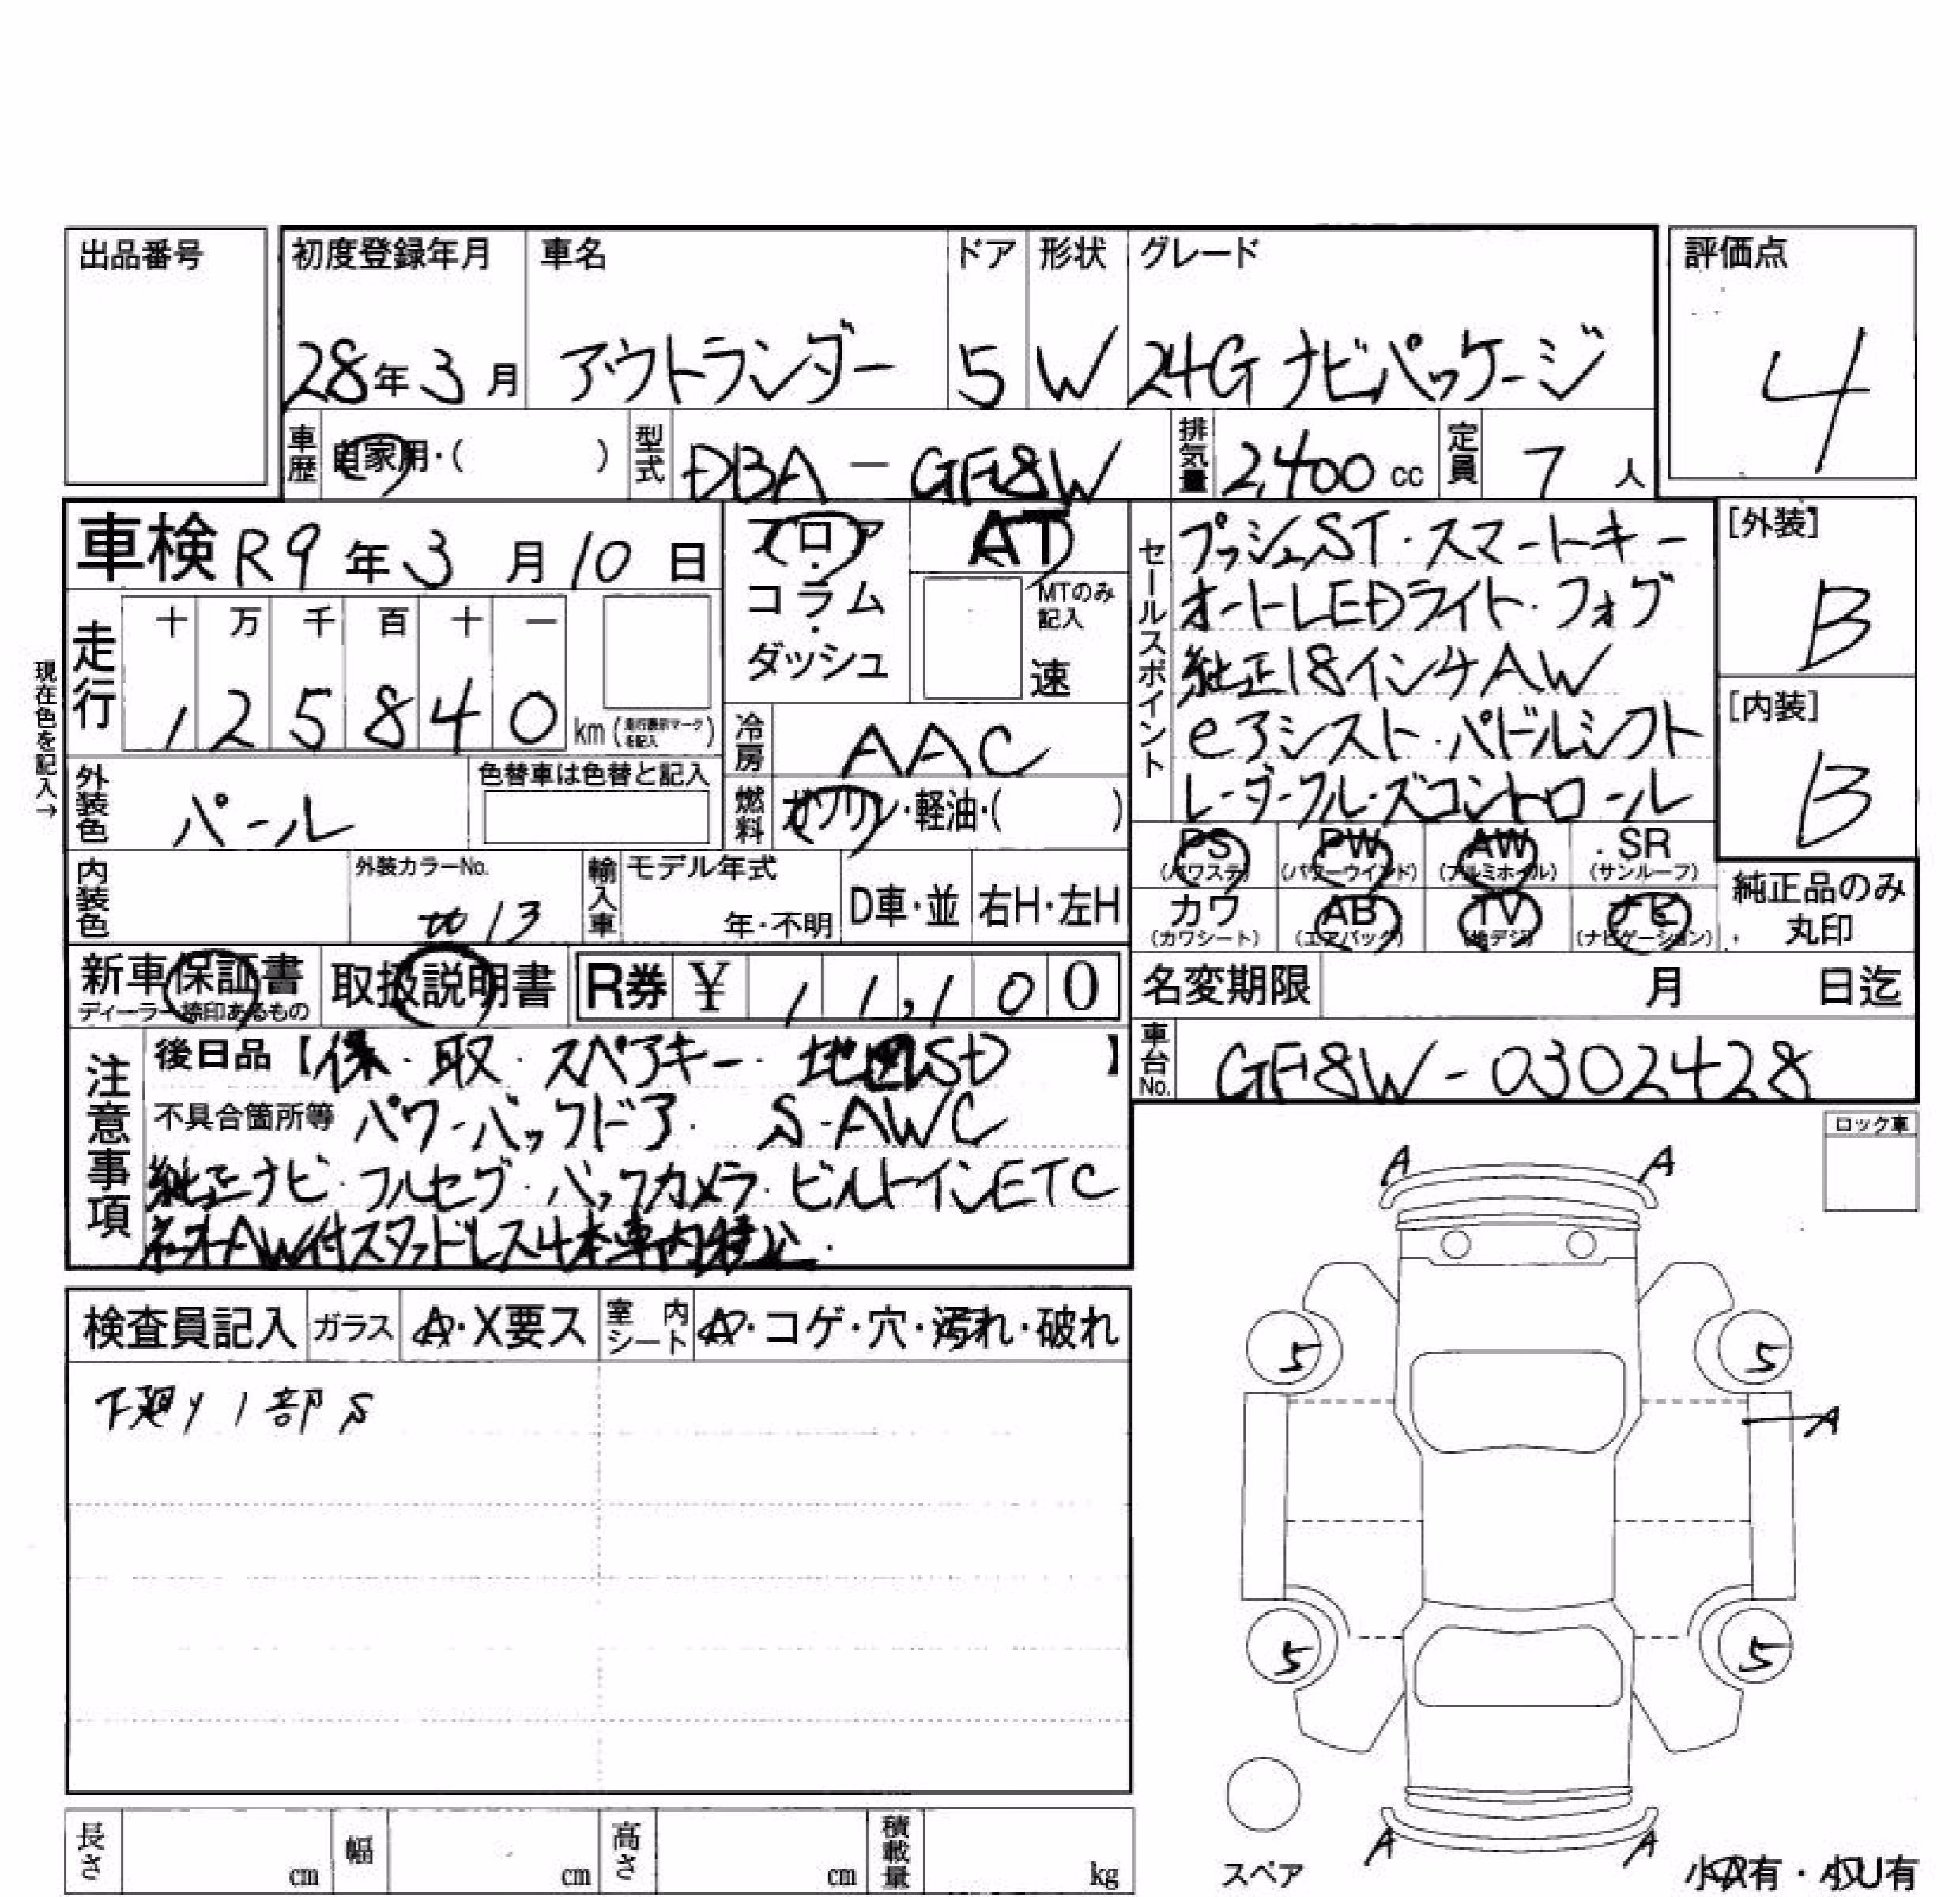 出品番号
初度登録年月 車名 ドア 形状 グレード 評価点
28年3月 アウトランダー 5 W 24G ナビパッケージ 4
車歴 自家用・( ) 型式 DBA-GF8W 排気量 2,400cc 定員 7人
車検 R9年3月10日
フロア・コラム・ダッシュ
AT
MTのみ記入
速
セールスポイント
プッシュST・スマートキー
オートLEDライト・フォグ
純正18インチAW
eアシスト・パドルシフト
レーダークルーズコントロール
[外装] B
[内装] B
現在色を記入→
走行 十 万 千 百 十 一
125840 km (走行表示マークを記入)
冷房 AAC
燃料 ガソリン・軽油・( )
外装色 パール 色替車は色替と記入
内装色 外装カラーNo. W13 輸入車 モデル年式 年・不明 D車・並 右H・左H
PS (パワステ) PW (パワーウインド) AW (アルミホイル) SR (サンルーフ)
カワ (カワシート) AB (エアバッグ) TV (地デジ) ナビ (ナビゲーション)
純正品のみ丸印
新車保証書 ディーラー捺印あるもの 取扱説明書 R券 ¥ 11,100
名変期限 月 日迄
車台No. GF8W-0302428
注意事項
後日品【保・取・スペアキー・地図SD】
不具合箇所等 パワーバックドア・ S-AWC
純正ナビ・フルセグ・バックカメラ・ビルトインETC
AW付スタッドレス4本車内積込
ロック車
検査員記入 ガラス A・X要ス 室内シート A・コゲ・穴・汚れ・破れ
下廻り1部S
A A
5 5
A
5 5
A A
スペア
小A有・小U有
長さ cm 幅 cm 高さ cm 積載量 kg